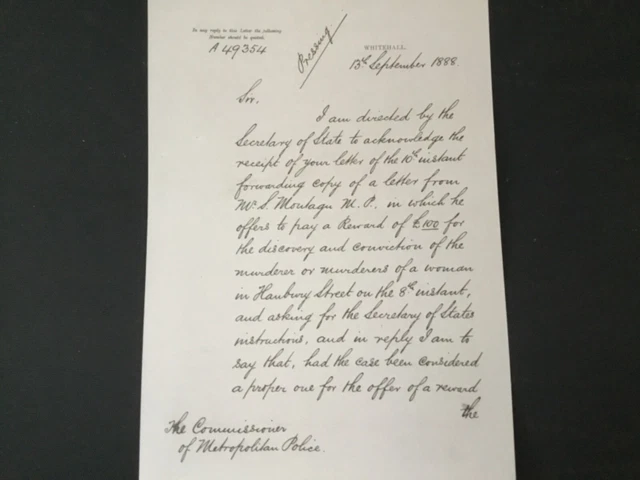 In any reply to this Letter the following
Number should be quoted.
A 49354
Pressing
WHITEHALL.
13th September 1888.
Sir.
I am directed by the
Secretary of State to acknowledge the
receipt of your letter of the 10th instant
forwarding copy of a letter from
Mr S. Montagu M.P., in which he
offers to pay a Reward of £100 for
the discovery and conviction of the
murderer or murderers of a woman
in Hanbury Street on the 8th instant,
and asking for the Secretary of State's
instructions, and in reply I am to
say that, had the case been considered
a proper one for the offer of a reward
the
The Commissioner
of Metropolitan Police.